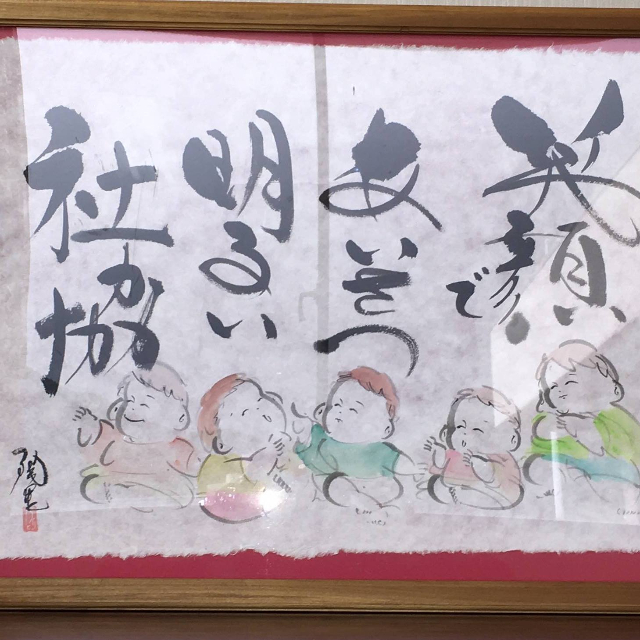 笑顔で
あいさつ
明るい
社協